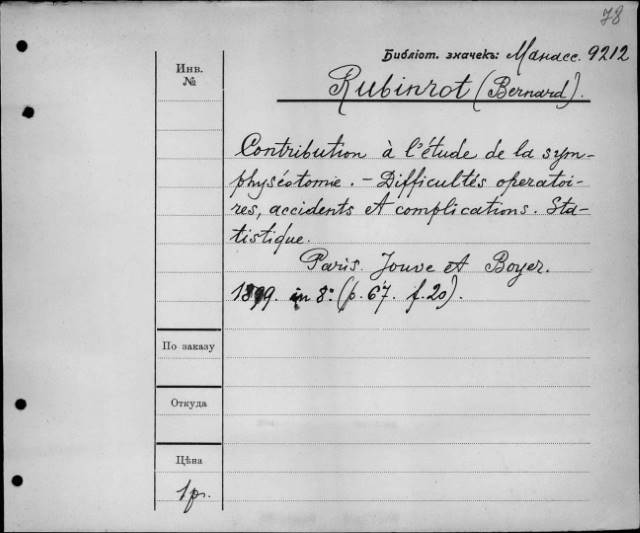 78
Библіот. значекъ: Манасс. 9212
Инв.
№
Rubinrot (Bernard).
Contribution à l'étude de la sym-
physéotomie. - Difficultés operatoi-
res, accidents et complications. Sta-
tistique.
Paris. Jouve et Boyer.
1899. in 8º (p. 67. f. 20).
По заказу
Откуда
Цѣна
1р.